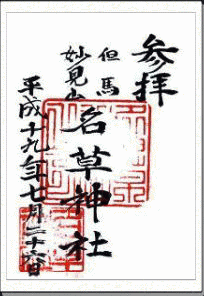 参拝
但馬
妙見山
名草神社
平成十九年七月二十六日